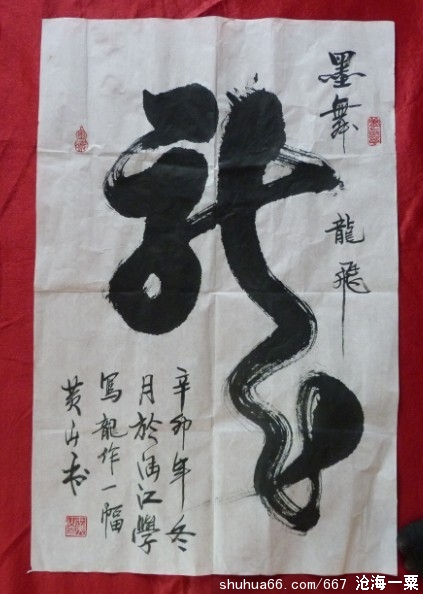 墨舞龍飛
龍
辛卯年冬
月於涵江學
寫龍作一幅
黄山书
shuhua66.com/667 沧海一粟